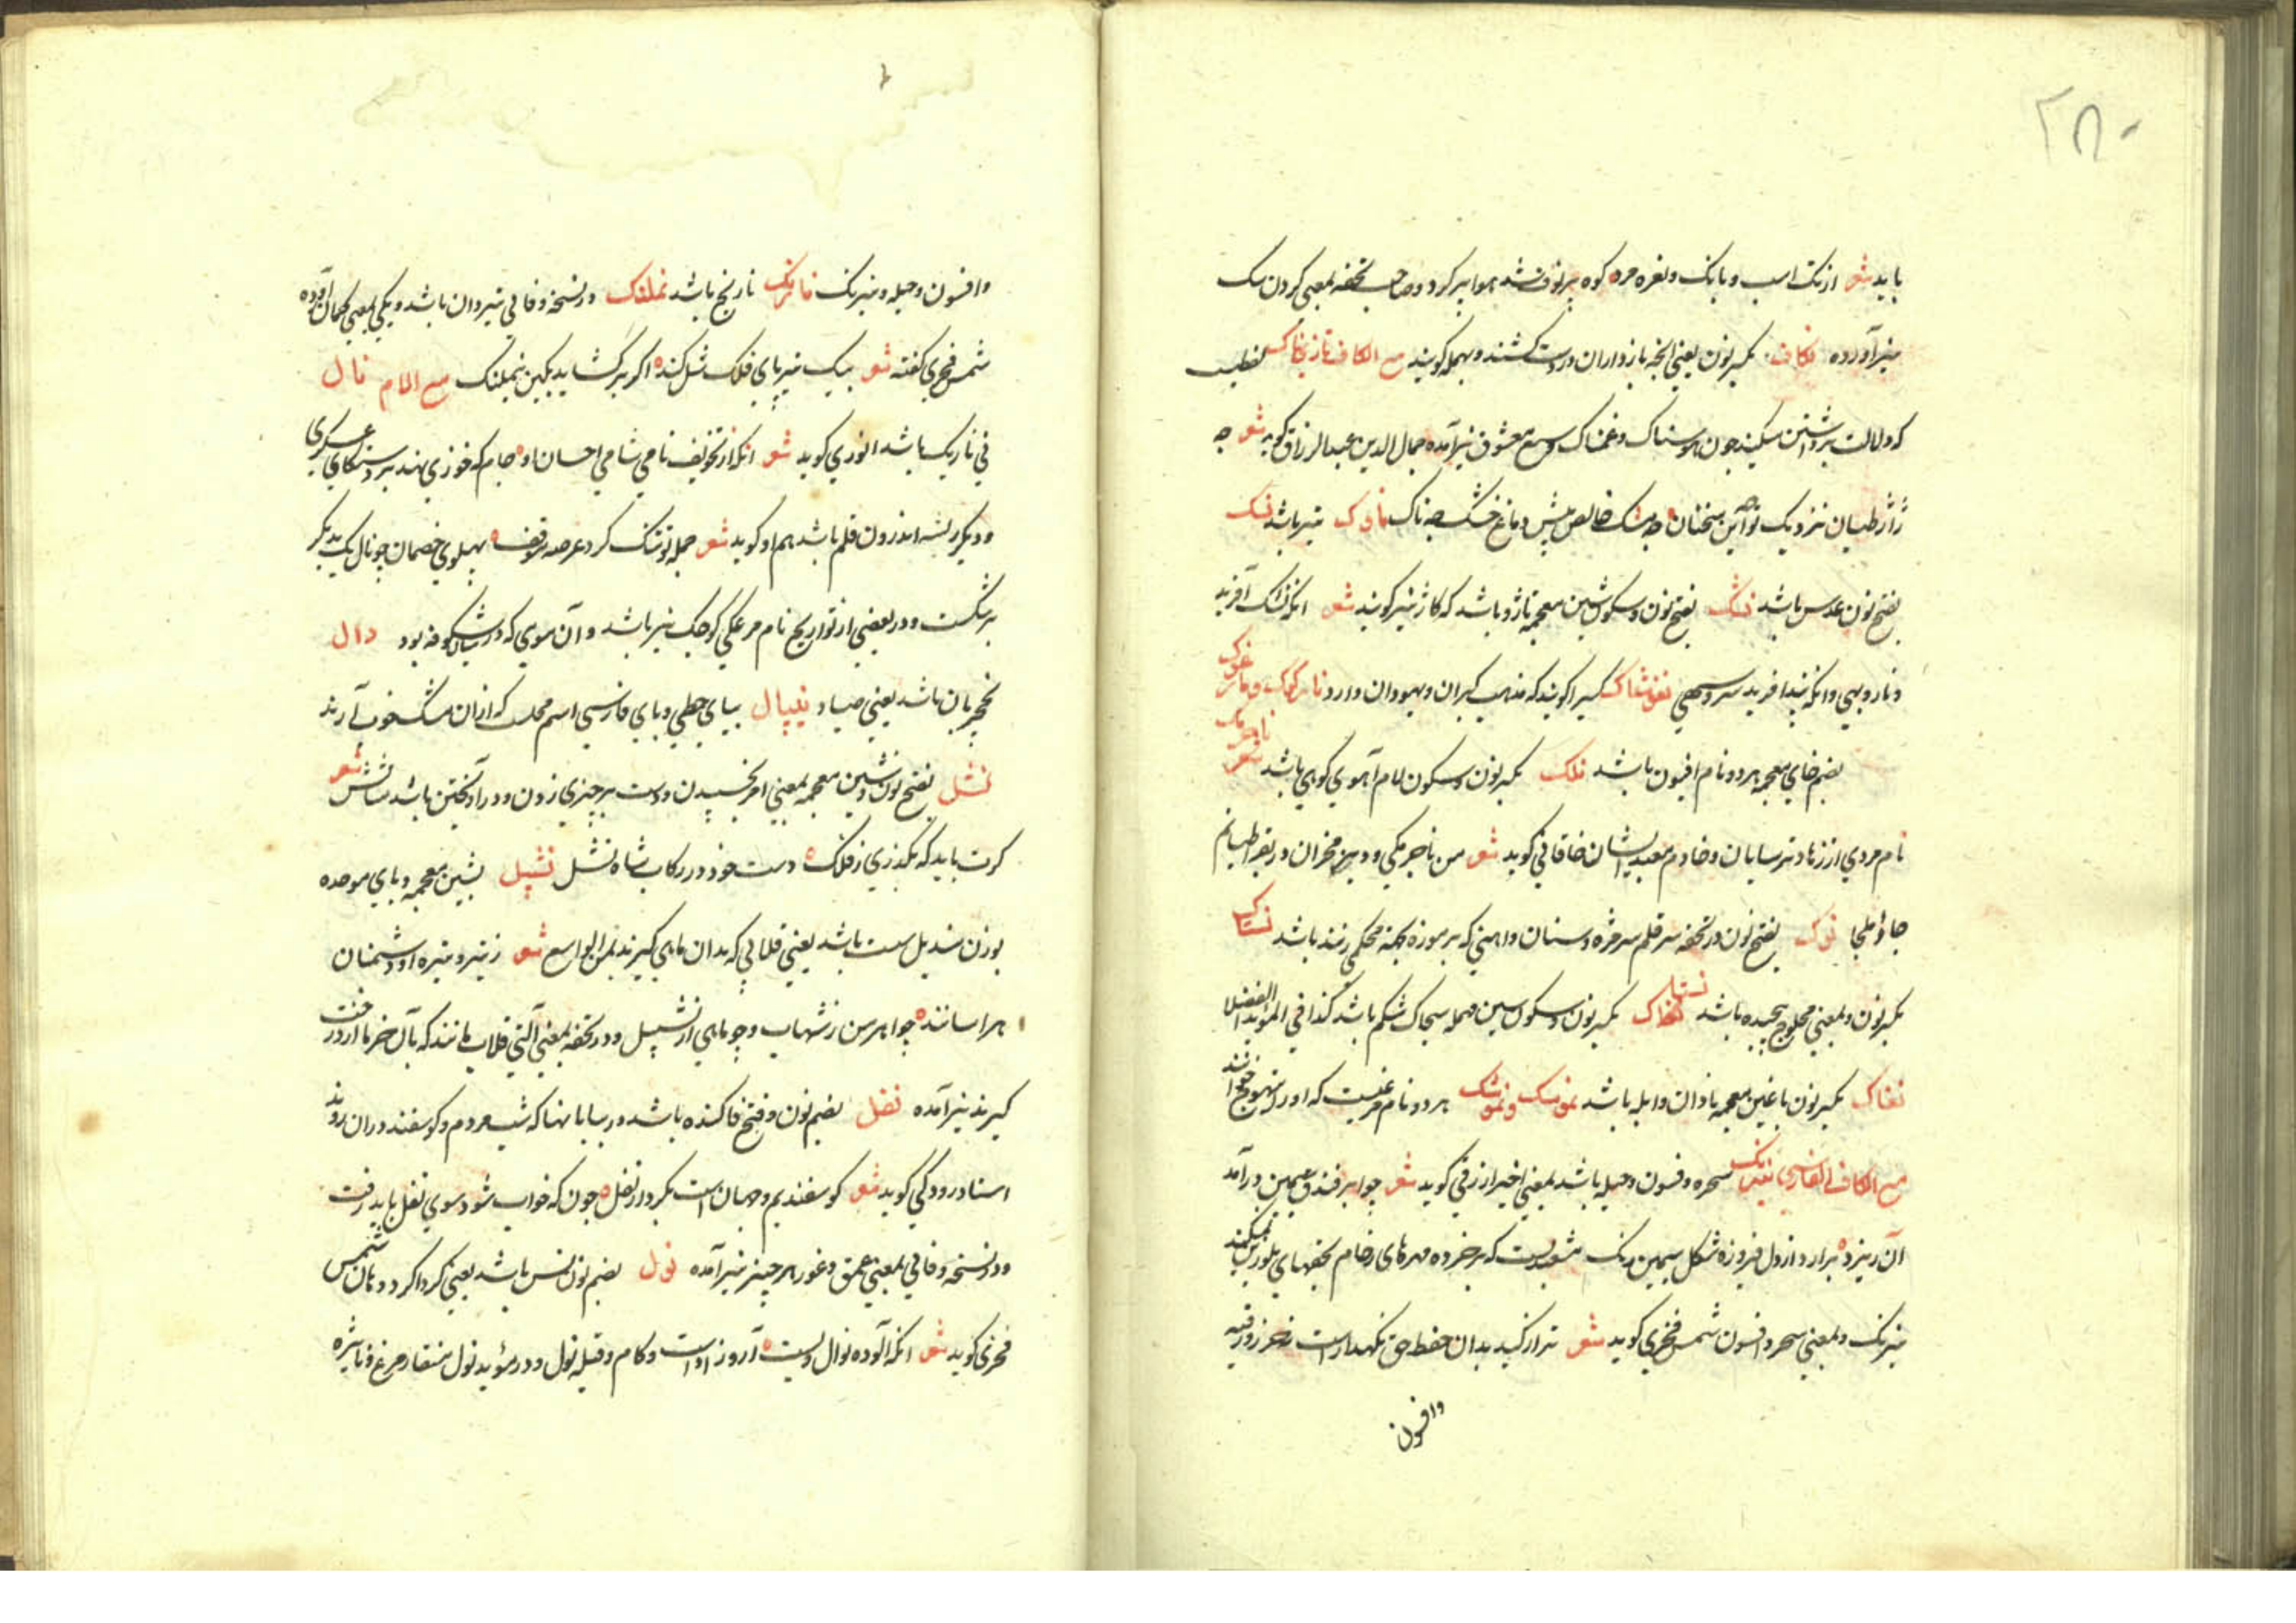 ۲۸۰
باید شعر از تک اسب و بانک و نعره مرد کوه پر نوف شد هوا پر کرد و صاحب تحفه بمعنی کردن سک
نیز آورده نکاف بکسر نون یعنی آنچه بازداران در دست کشند و بهله کویند مع الکاف تازی ناک لفظیست
که دلالت بر داشتن میکند چون هوسناک و غمناک و بمعنی معشوق نیز آمده جمال الدین عبدالرزاق کوید شعر چه
ژاژ طیان نزدیک نوآیین سخنان چه مشک خالص پیش دماغ خشک چه ناک ناوک تیر باشد نسک
بفتح نون عدس باشد نشک بفتح نون و سکون شین معجمه ناژو باشد که کاژ نیز کویند شعر آنکه نشک آفرید
و نارو بهی و آنکه بید آفرید سرو سهی نغوشاک کسی را کویند که مذهب کبران و یهودان دارد نارخوک و نارخوک
بضم خای معجمه هر دو نام افیون باشد نلک بکسر نون و سکون لام آهوی کوهی باشد ناجرمک شعر
نام مردی از زهاد ترسایان و خادم معبد ایشان خاقانی کوید شعر من ناجرمکی و دیر مخران در بقراطیانم
جا و ملجا نوک بفتح نون در تحفه سر قلم سر خره و سنان و آهنی که بر موزه بجهة محکمی زنند باشد نستاک
بکسر نون و بمعنی محلوج پیچیده باشد نسناک بکسر نون و سکون سین مهمله سجاک شکم باشد کذا فی المؤید الفضلا
نغناک بکسر نون با غین معجمه نادان و ابله باشد نموسک و نموشک هر دو نام مرغیست که اورا تیهو خوانند
مع الکاف الفارسی نیرنک سحره و فسون و حیله باشد بمعنی اخیر ازرقی کوید شعر چو ابر فندق سیمین در آمد
آن ریزد برارد از دل فیروزه شکل سیمین رنک مشعبدیست که بر خرده مهرهای رخام بحقهای بلورین میکند
نیرنک و بمعنی سحر و افسون شمس فخری کوید شعر
وافسون
وافسون و حیله و نیرنک نارنک نارنج باشد نملنک در نسخه وفائی تیردان باشد و یکی بمعنی کمان آورده
شمس فخری کفته شعر بیک تیر پای فلک شل کند اکر بر کشاید بکین نیملنک مع اللام نال
نی باریک باشد انوری کوید شعر آنکه از تخویف نامی شامی احسان او جام که خوزی نهد بر دستکاه عسکری
و دیکر ریشه اندرون قلم باشد هم او کوید شعر حمله تو تنک کرد عرصه موقف پهلوی خصمان چو نال یک بدیکر
بر شکست و در بعضی از تواریخ نام مرغکی کوچک نیز باشد و آن موی که در میان شکوفه بود دال
نخچیربان باشد یعنی صیاد نیپال بیای حطی و بای فارسی اسم محلیست که از آن مشک خوب آرند
نشل بفتح نون و شین معجمه بمعنی امر بخسپیدن و دست بر چیزی زدن و در آویختن باشد مثالش شعر
کرت باید که بکذری ز فلک دست خود در رکاب شاه نشل نشپل بشین معجمه و بای موحده
بوزن مندیل شست باشد یعنی قلابی که بدان ماهی کیرند شعر ز تیر و نیزه او دشمنان
هراسانند چو اهرمن ز شهاب و چو ماهی از نشپیل و در تحفه بمعنی آلتی قلاب مانند که بآن خرما از درخت
کیرند نیز آمده نغل بضم نون و فتح غا کنده باشد در بیابانها که شب مردم و کوسفند در آن روند
استاد رودکی کوید شعر کوسفندیم و جهان است بکردار نغل چون که خواب شود سوی نغل باید رفت
و در نسخه وفائی بمعنی عمق و غور هر چیز نیز آمده نول بضم نون نس باشد یعنی کرداکرد دهان شمس
فخری کوید شعر آنکه آلوده نوال ویست آرزو را دست و کام و قبله نول و در مؤید نول منقار مرغ و نایژه